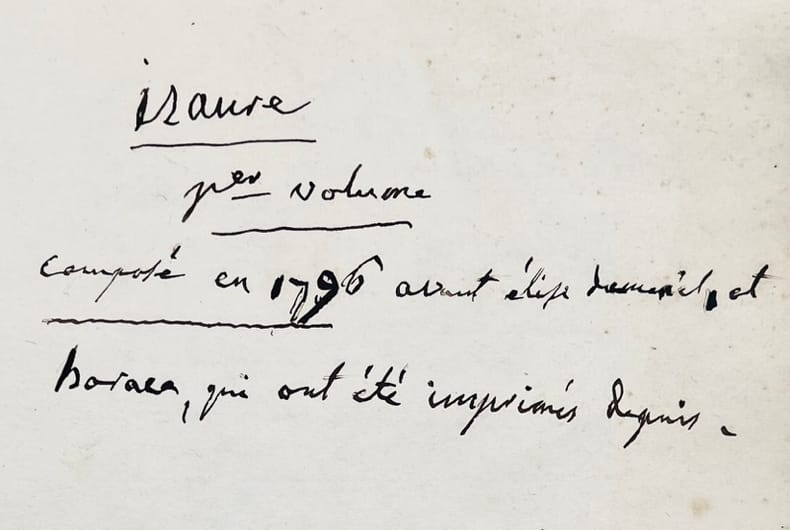 izaure
1er volume
composé en 1796 avant élise duménil, et
horace, qui ont été imprimés depuis.